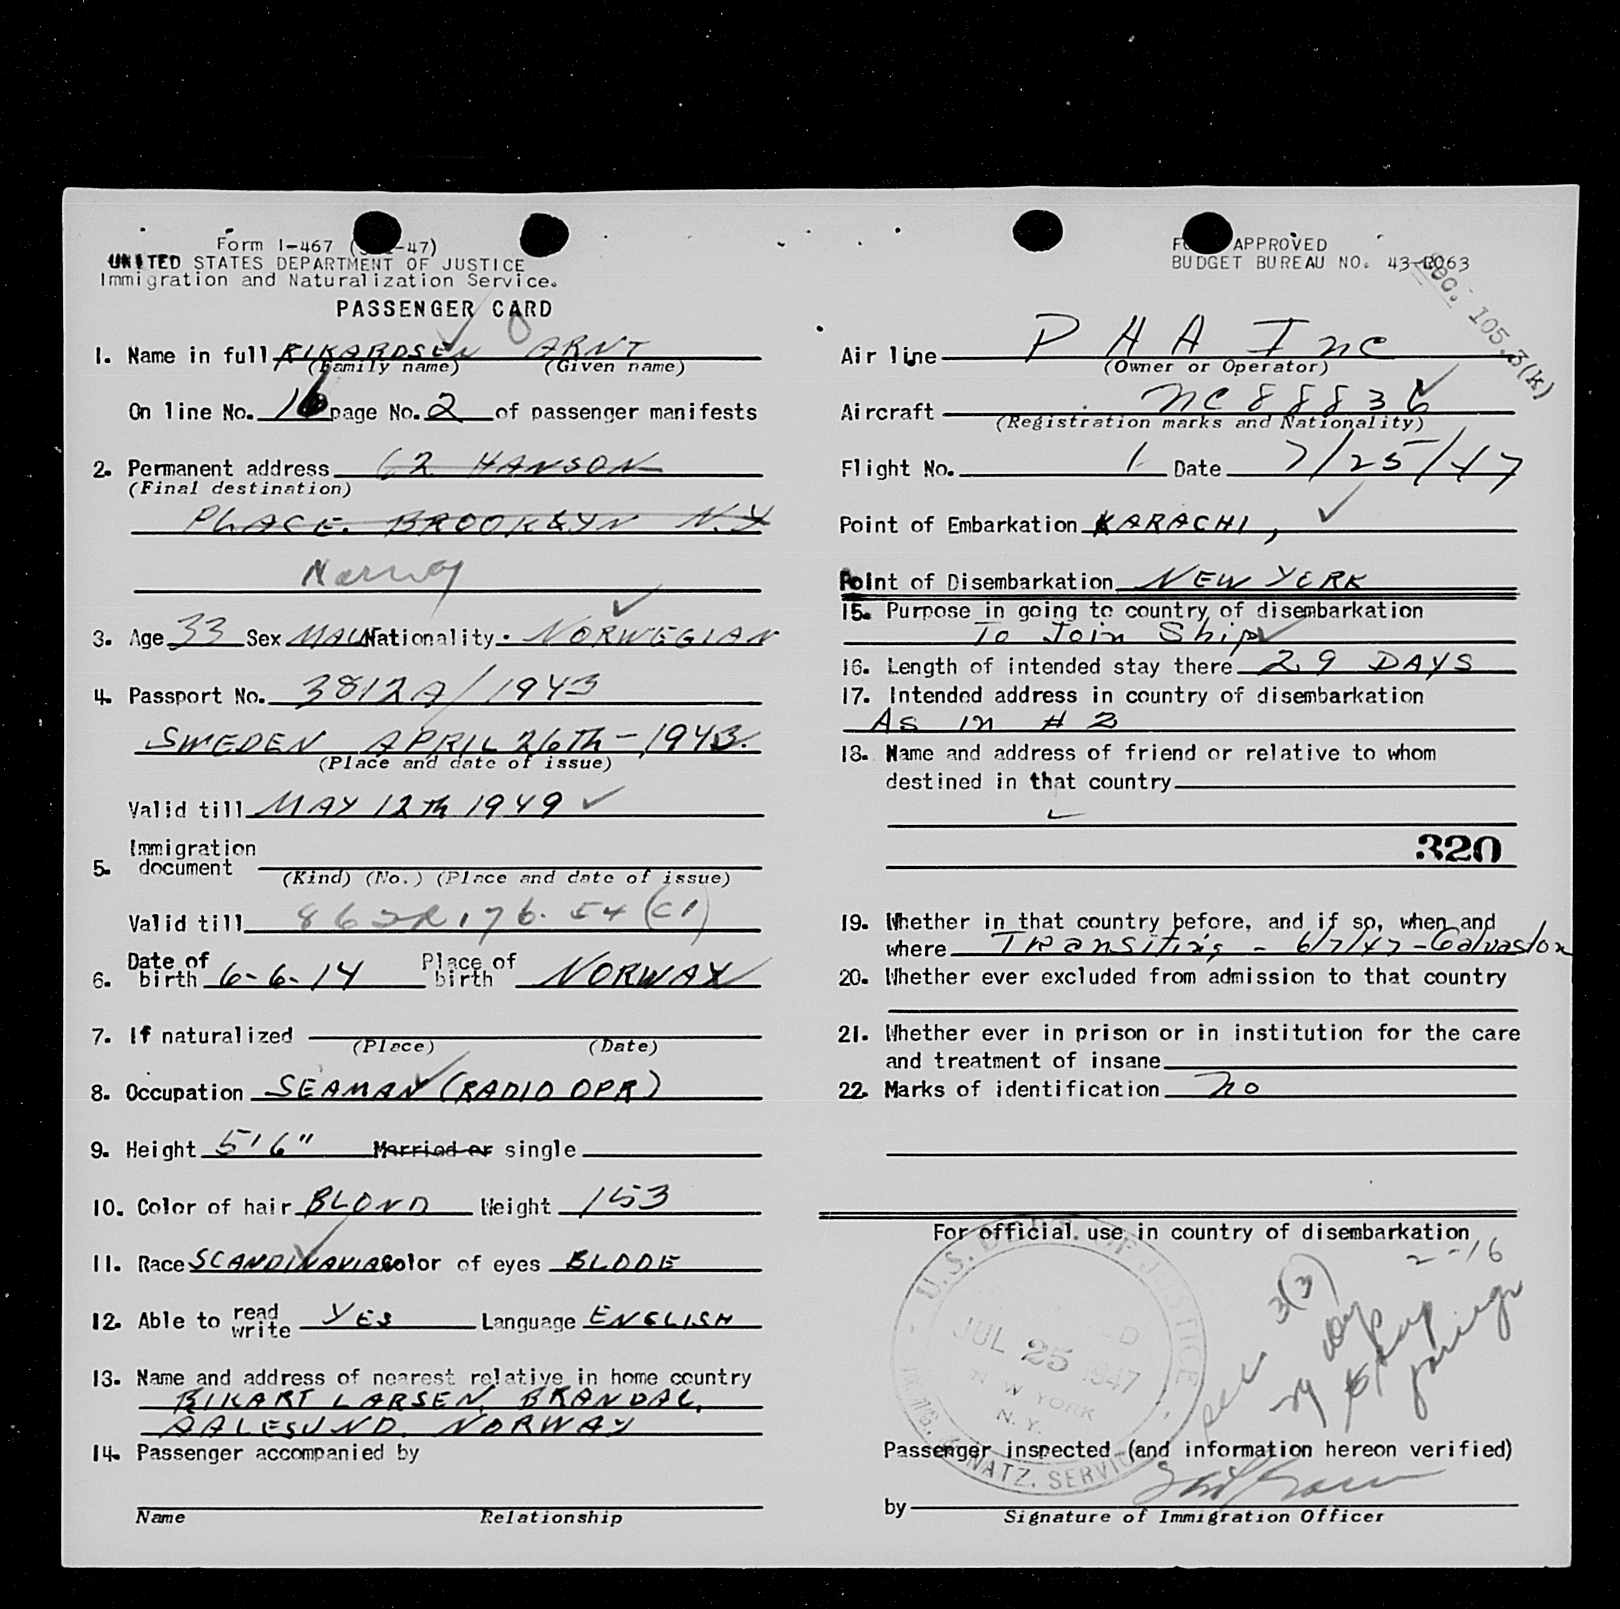 Form I-467 ( -47)
UNITED STATES DEPARTMENT OF JUSTICE
Immigration and Naturalization Service.
PASSENGER CARD
1. Name in full RIKARDSEN ARNT
(Family name) (Given name)
On line No. 16 page No. 2 of passenger manifests
2. Permanent address 62 HANSON
(Final destination)
PLACE. BROOKLYN N.Y
Norway
3. Age 33 Sex MALE Nationality. NORWEGIAN
4. Passport No. 3812A/1943
SWEDEN APRIL 26Th-1943.
(Place and date of issue)
Valid till MAY 12Th 1949
5. Immigration document
(Kind) (No.) (Place and date of issue)
Valid till
6. Date of birth 6-6-14 Place of birth NORWAY
7. If naturalized
(Place) (Date)
8. Occupation SEAMAN (RADIO OPR)
9. Height 5'6" Married or single
10. Color of hair BLOND Weight 153
11. Race SCANDINAVIAN Color of eyes BLODE
12. Able to read write YES Language ENGLISH
13. Name and address of nearest relative in home country
RIKART LARSEN, BRANDAL,
AALESUND. NORWAY
14. Passenger accompanied by
Name Relationship
APPROVED
BUDGET BUREAU NO. 43-R063
Sec. 105.3(k)
Air line P H A Inc
(Owner or Operator)
Aircraft NC 88836
(Registration marks and Nationality)
Flight No. 1 Date 7/25/47
Point of Embarkation KARACHI,
Point of Disembarkation NEW YORK
15. Purpose in going to country of disembarkation
To Join Ship
16. Length of intended stay there 29 DAYS
17. Intended address in country of disembarkation
As in # 2
18. Name and address of friend or relative to whom
destined in that country
320
19. Whether in that country before, and if so, when and
where Transiting - 6/7/47 - Galvaston
20. Whether ever excluded from admission to that country
21. Whether ever in prison or in institution for the care
and treatment of insane
22. Marks of identification no
For official use in country of disembarkation
2-16
3(3)
29 days
U.S. DEPT. OF JUSTICE
JUL 25 1947
NEW YORK
N.Y.
IMMIG. & NATZ. SERVICE
Passenger inspected (and information hereon verified)
by
Signature of Immigration Officer